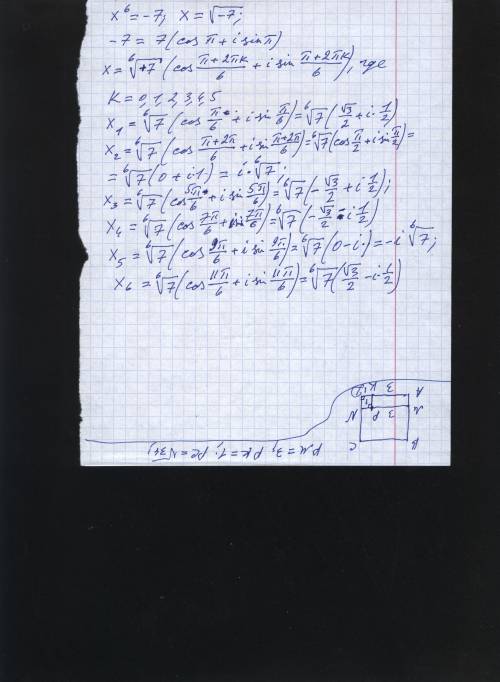 x⁶ = -7; x = ⁶√-7;
-7 = 7(cos π + i sin π)
x = ⁶√+7 (cos (π+2πk)/6 + i sin (π+2πk)/6), где
K = 0, 1, 2, 3, 4, 5
x₁ = ⁶√7 (cos π/6 + i sin π/6) = ⁶√7 (√3/2 + i · 1/2)
x₂ = ⁶√7 (cos (π+2π)/6 + i sin (π+2π)/6) = ⁶√7 (cos π/2 + i sin π/2) =
= ⁶√7 (0 + i·1) = i · ⁶√7;
x₃ = ⁶√7 (cos 5π/6 + i sin 5π/6) = ⁶√7 (-√3/2 + i 1/2);
x₄ = ⁶√7 (cos 7π/6 + i sin 7π/6) = ⁶√7 (-√3/2 - i 1/2)
x₅ = ⁶√7 (cos 9π/6 + i sin 9π/6) = ⁶√7 (0 - i·) = -i ⁶√7;
x₆ = ⁶√7 (cos 11π/6 + i sin 11π/6) = ⁶√7 (√3/2 - i · 1/2)
PM = 3, PK = 1; PC = √34
C B
N P 3 M
1
K 3 A